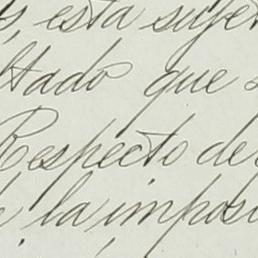 , esta suje
ltado que
Respecto de
la impos